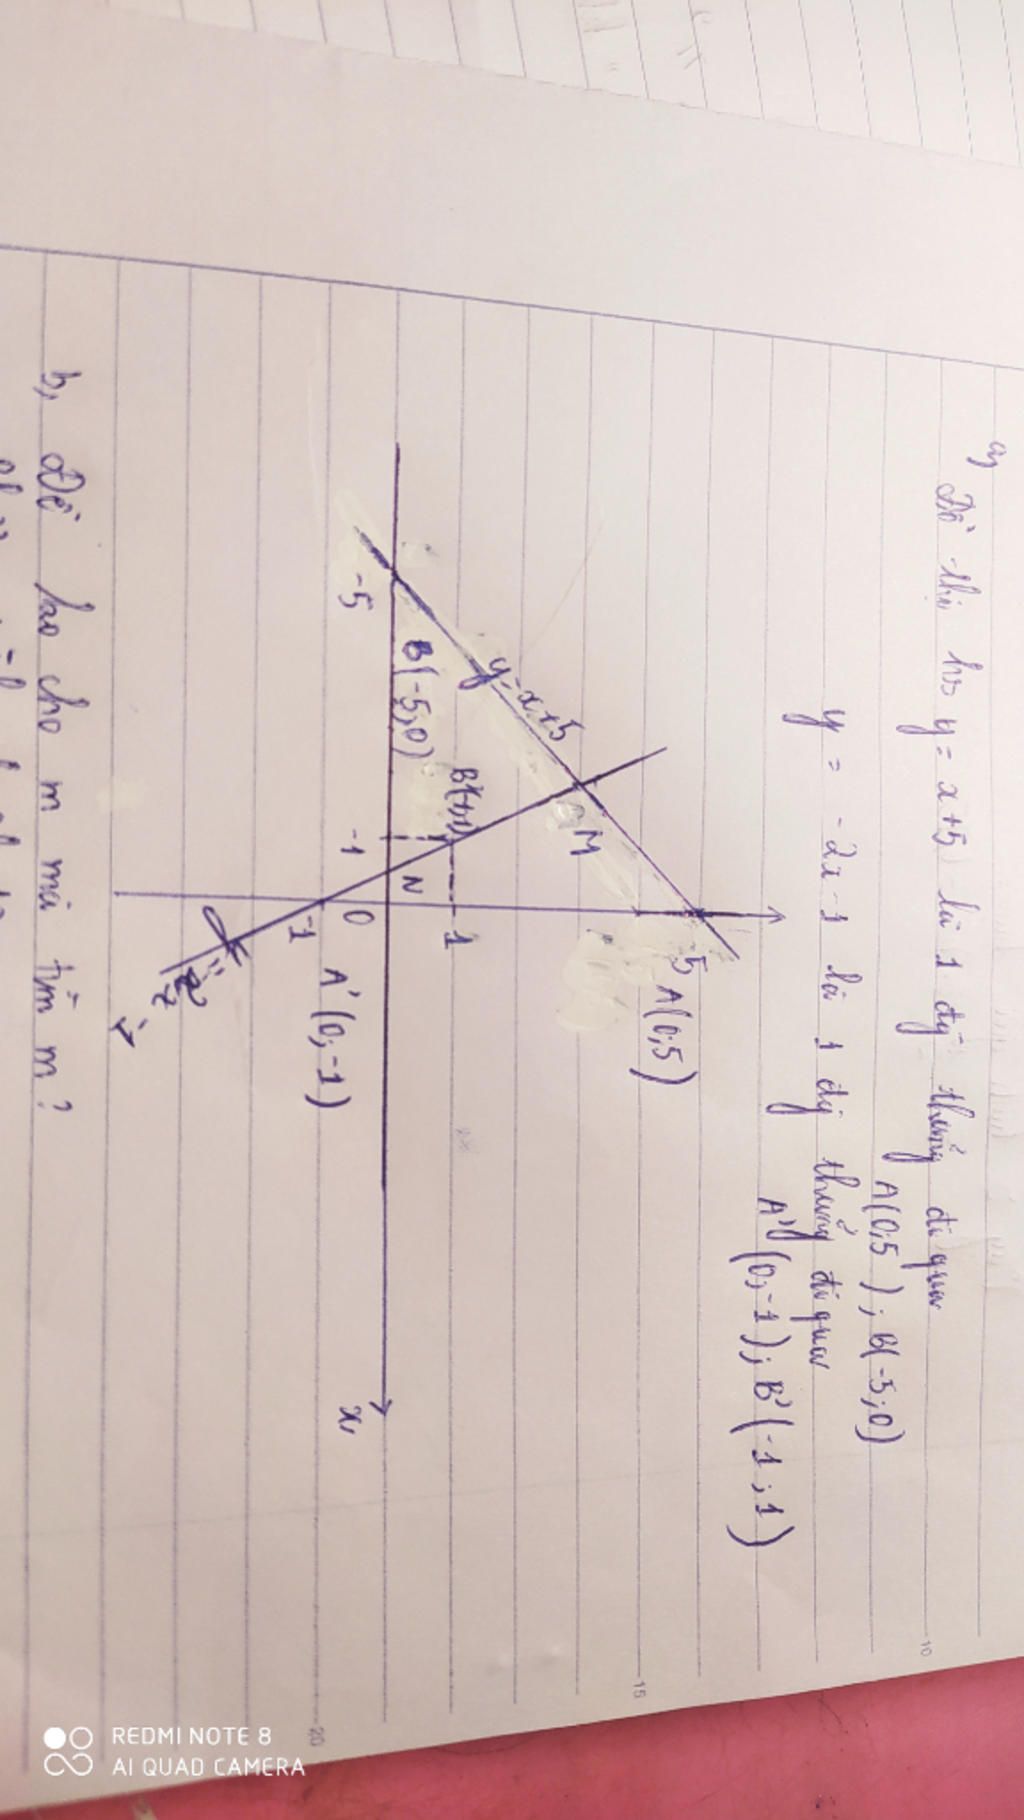 a, Đồ thị hs y = x+5 là 1 đg thẳng đi qua
A(0;5); B(-5;0)
y = -2x-1 là 1 đg thẳng đi qua
A'(0;-1); B'(-1;1)
5 A(0;5)
M
y=x+5
B'(-1;1)
1
B(-5;0)
N
-5
-1
0
x
-1
A'(0;-1)
b, Đề sao cho m mà tìm m?
10
15
20
REDMI NOTE 8
AI QUAD CAMERA